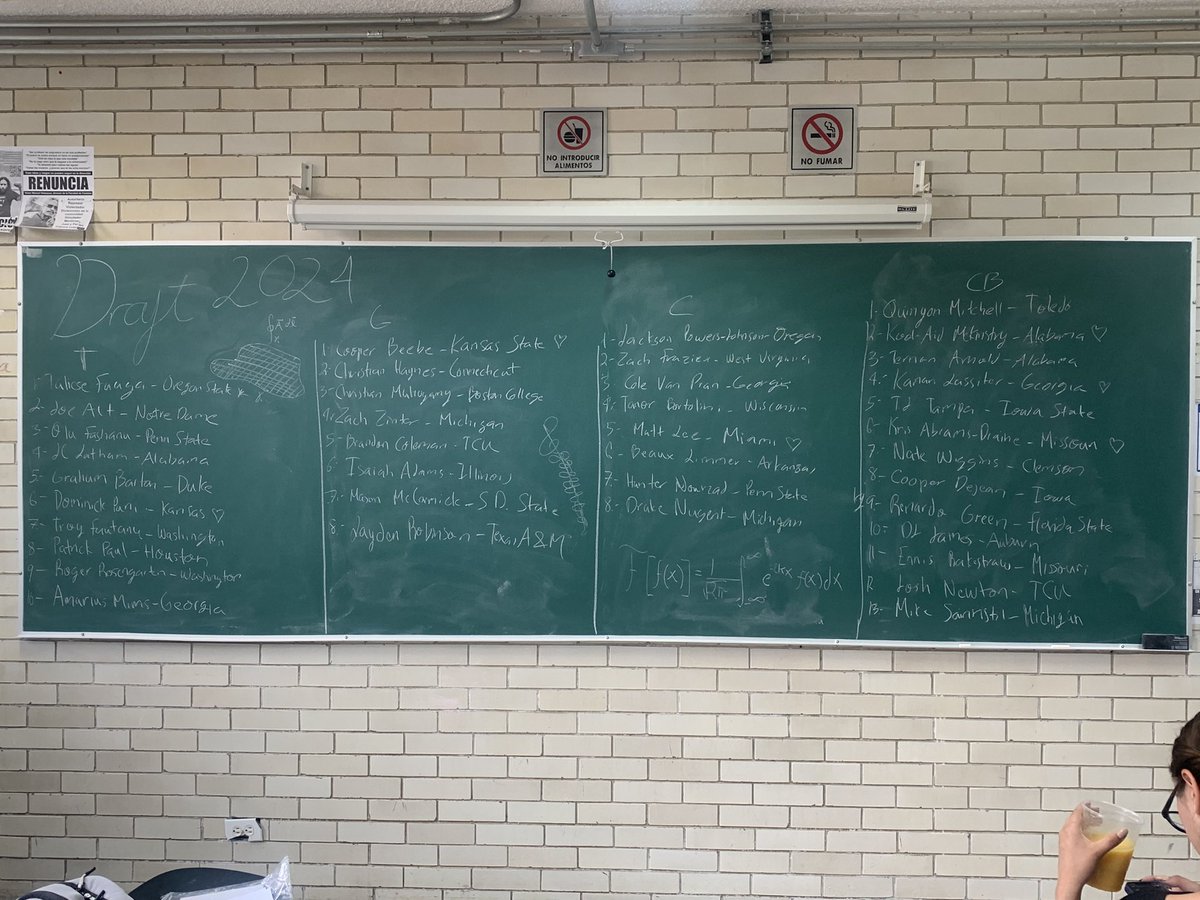 NO INTRODUCIR
ALIMENTOS
NO FUMAR
RENUNCIA
Draft 2024
T
1- Taliese Fuaga - Oregon State *
2- Joe Alt - Notre Dame
3- Olu Fashanu - Penn State
4- JC Latham - Alabama
5- Graham Barton - Duke
6- Dominick Puni - Kansas ♡
7- Troy Fautanu - Washington
8- Patrick Paul - Houston
9- Roger Rosengarten - Washington
10- Amarius Mims - Georgia
G
1- Cooper Beebe - Kansas State ♡
2- Christian Haynes - Connecticut
3- Christian Mahogany - Boston College
4- Zach Zinter - Michigan
5- Brandon Coleman - TCU
6- Isaiah Adams - Illinois
7- Mason McCormick - S.D. State
8- Layden Robinson - Texas A&M
C
1- Jackson Powers-Johnson - Oregon
2- Zach Frazier - West Virginia
3- Cole Van Pran - Georgia
4- Tanor Bortolini - Wisconsin
5- Matt Lee - Miami ♡
6- Beaux Limmer - Arkansas
7- Hunter Nourzad - Penn State
8- Drake Nugent - Michigan
F[f(x)] = 1/√2π ∫_{-∞}^{∞} e^{-ikx} f(x)dx
CB
1- Quinyon Mitchell - Toledo
2- Kool-Aid McKinstry - Alabama ♡
3- Terrian Arnold - Alabama
4- Kamari Lassiter - Georgia ♡
5- TJ Tampa - Iowa State
6- Kris Abrams-Draine - Missouri ♡
7- Nate Wiggins - Clemson
8- Cooper Dejean - Iowa
9- Renardo Green - Florida State
10- DJ James - Auburn
11- Ennis Rakestraw - Missouri
12 Josh Newton - TCU
13- Mike Sainristil - Michigan